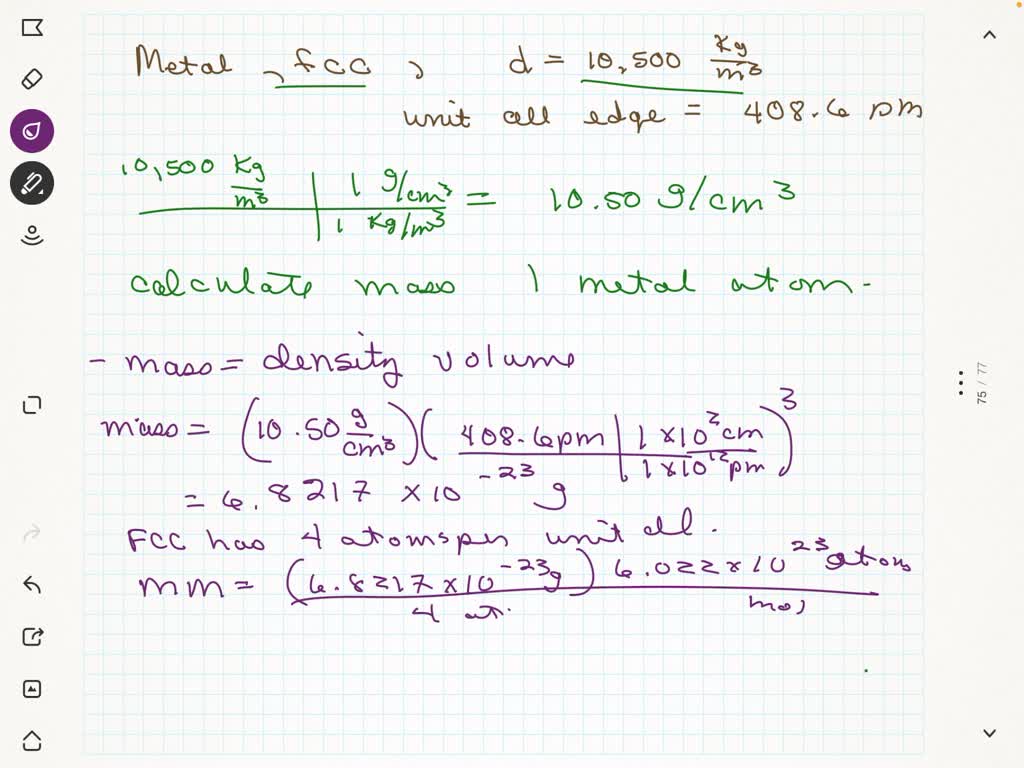 Metal, fcc, d = 10,500 Kg/m³
unit cell edge = 408.6 pm
10,500 Kg/m³ | 1 g/cm³ / 1 Kg/m³ = 10.50 g/cm³
calculate mass 1 metal atom.
- mass = density volume
mass = (10.50 g/cm³)(408.6 pm | 1 x10² cm / 1 x10¹² pm)³
= 6.8217 x10⁻²³ g
FCC has 4 atoms per unit cell.
mm = (6.8217 x10⁻²³ g) 6.022 x10²³ atoms
4 at. mol
75 / 77